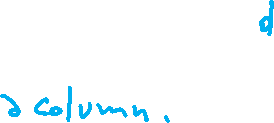 d
a column.